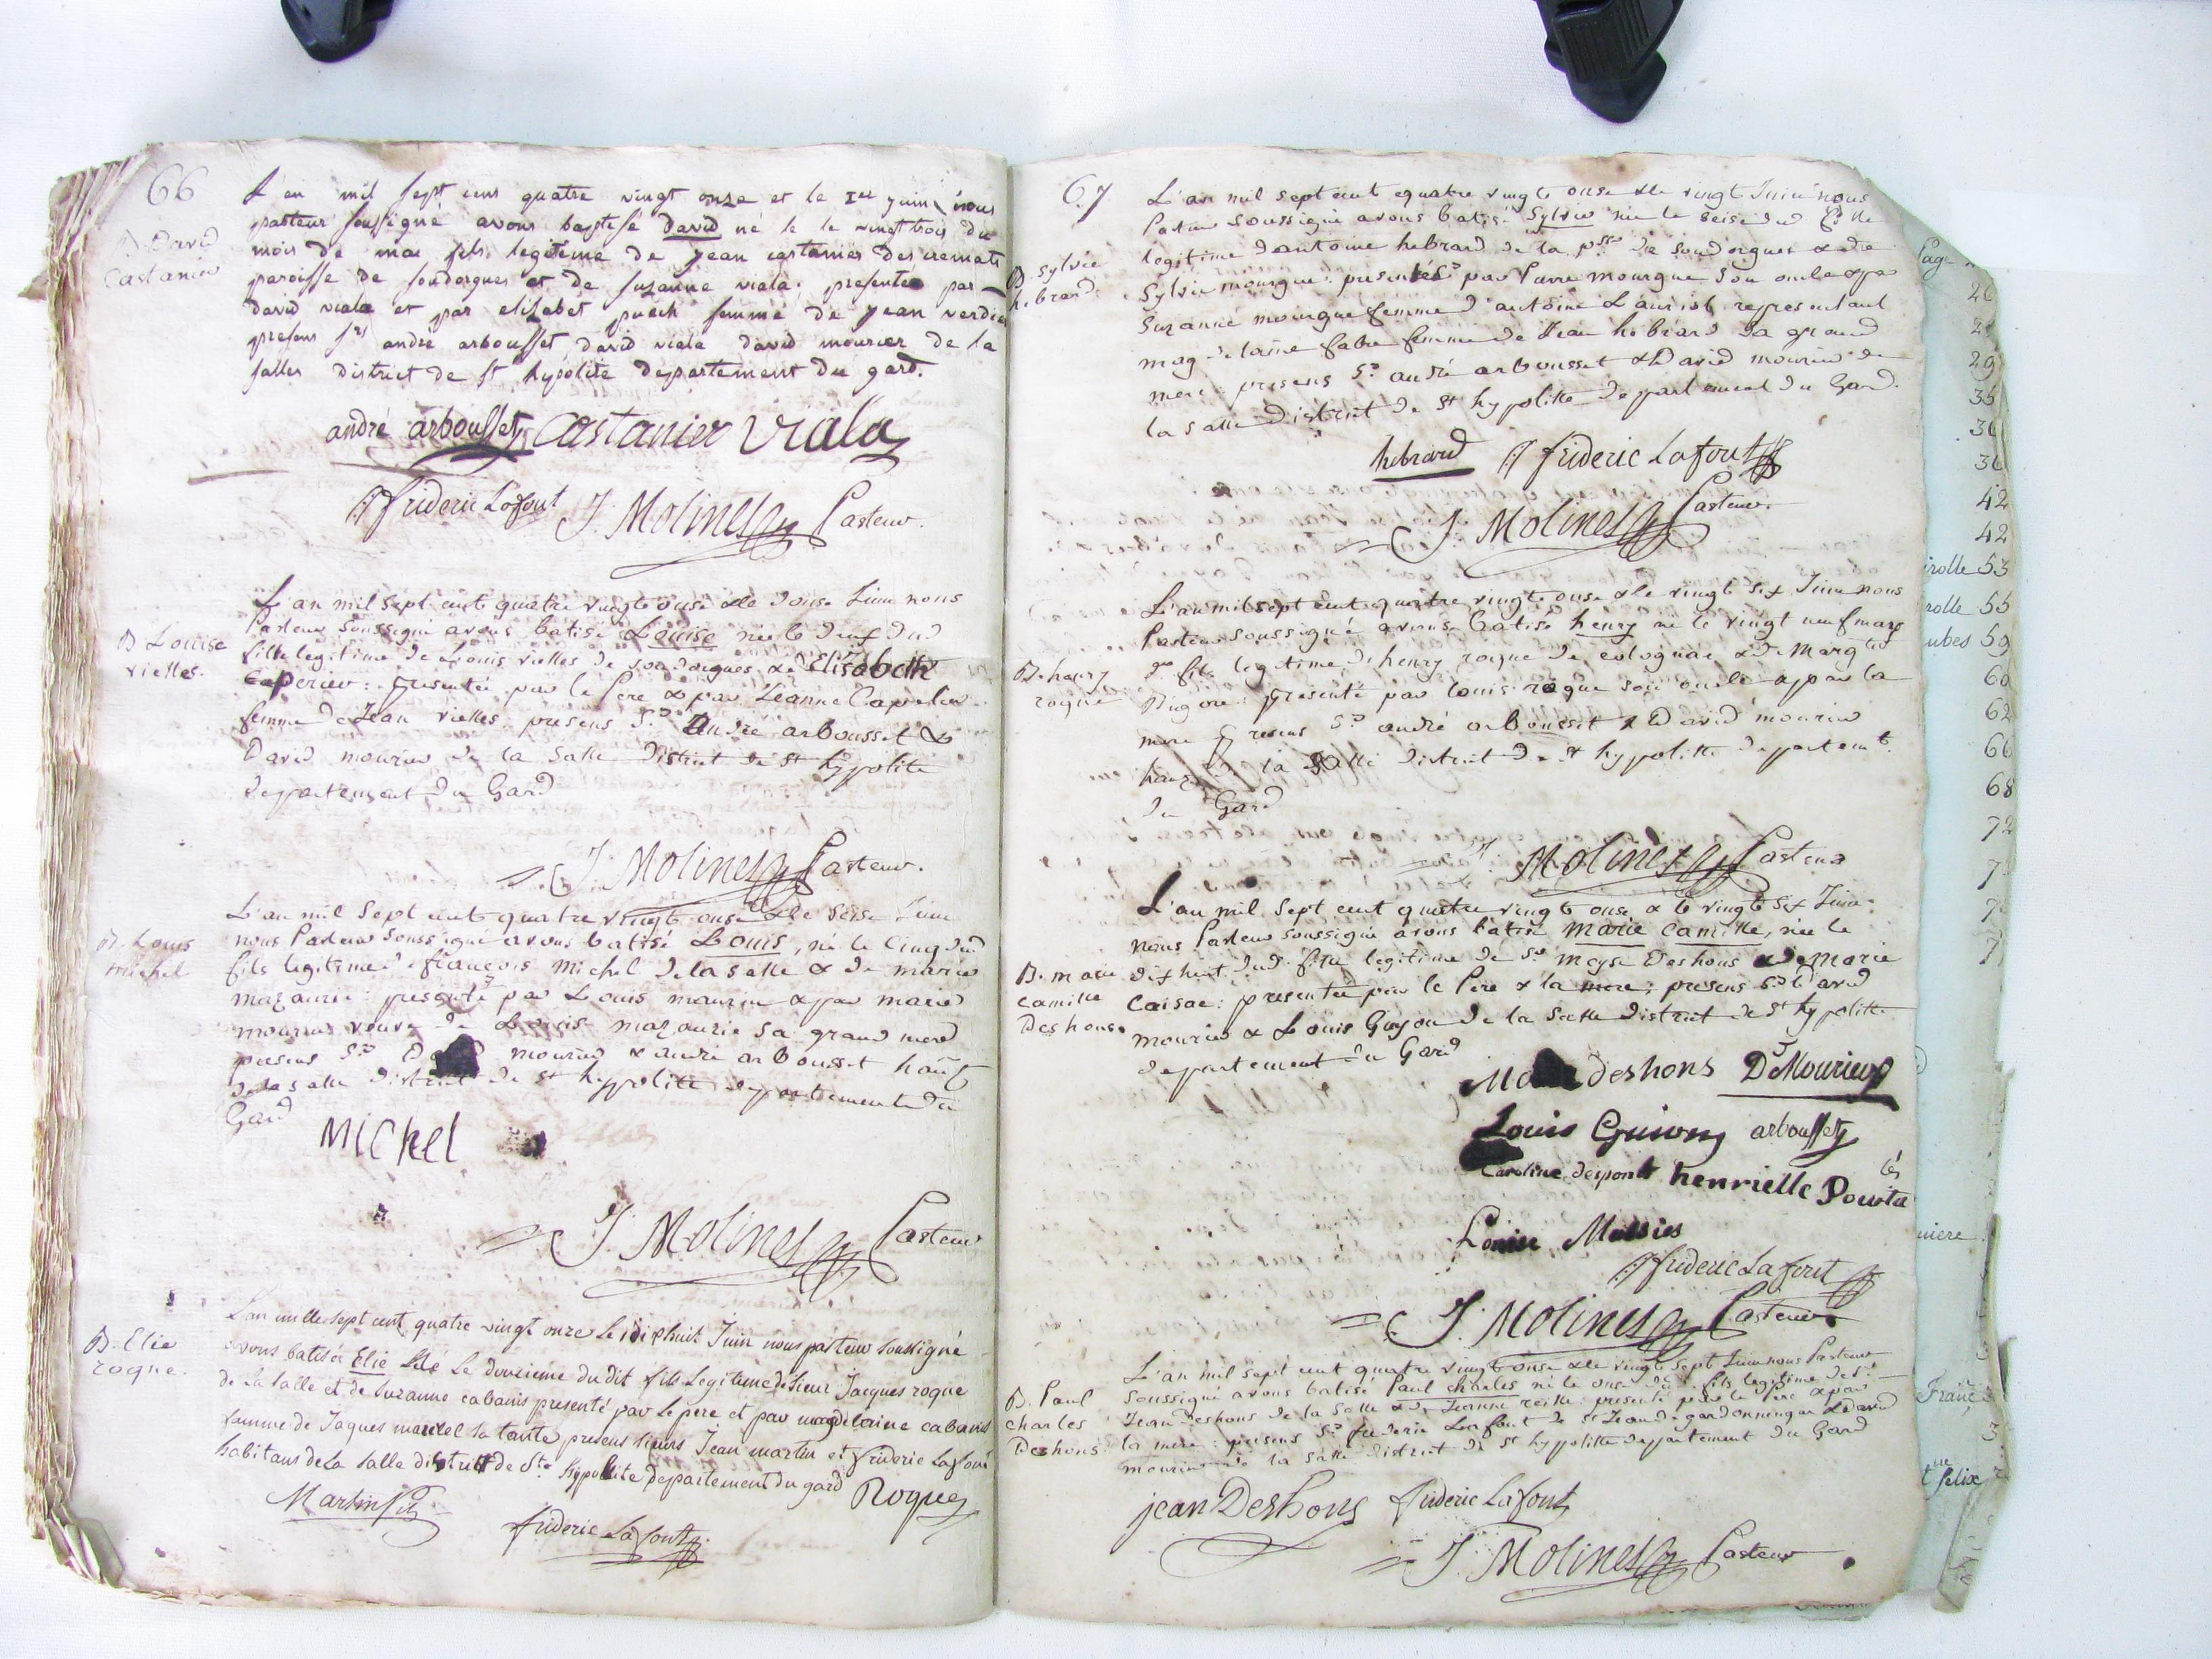 66
B. David
Castanier
L'an mil sept cens quatre vingt onze et le 1er juin nous
pasteur soussigné avons baptisé david né le le vingt trois du
mois de mai fils legitime de jean castanier des cremats
paroisse de soudorgues et de suzanne viala. presenté par
david viala et par elizabet puech femme de jean verdier
presens srs andré arbousset david viala david mourier de la
salles district de st hypolite departement du gard.
andré arbousset Castanier Viala
frideric Lafont J. Molines Pasteur.
B Louise
vielles.
L'an mil sept cent quatre vingt onse & le douse Juin nous
Pasteur soussigné avons batisé Louise née le neuf dud
fille legitime de Louis vielles de soudorgues & d'Elisabeth
Caperier: presentée par le Pere & par Jeanne Capelier
femme de Jean vielles. presens Srs André arbousset &
David mourier de la Salle district de st hypolite
departement du Gard
J. Molines Pasteur.
B. Louis
michel
L'an mil sept cent quatre vingt onse & le seise Juin
nous Pasteur soussigné avons batisé Louis, né le Cinq dud
fils legitime de françois michel de la salle & de marie
mazauric: presenté par Louis mourier & par marie
mourier veuve de Louis mazauric sa grand mere
presens Srs mourier & andré arbousset haut
de la salle district de st hypolite departement du
Gard
MICHEL
J. Molines Pasteur
B. Elie
roque.
L'an mille sept cent quatre vingt onze le dixhuit Juin nous pasteur soussigné
avons batisé Elie né le douzieme du dit fils Legitime de sieur Jacques roque
de la salle et de suzanne cabanis presenté par le pere et par magdelaine cabanis
famme de Jaques manxel sa tante presens sieurs Jean martin et frideric Lafont
habitans de La salle district de Ste hyppolite departement du gard Roque
Martin fils
frideric Lafont
67
B. Sylvie
hebrard
L'an mil sept cent quatre vingt onse & le vingt Juin nous
Pasteur soussigné avons batisé Sylvie née le seise dud fille
legitime d'antoine hebrard de la psse de soudorgues & de
Sylvie mourgue: presentée par Pierre mourgue son oncle & par
Suzanne mourgue femme d'antoine Lauriol representant
magdelaine fabre femme de Jean hebrard sa grand
mere: presens Srs andré arbousset & David mourier de
la salle district de st hypolitte departement du Gard.
hebrard frideric Lafont
J. Molines Pasteur.
B. henry
roque
L'an mil sept cent quatre vingt onse & le vingt six Juin nous
Pasteur soussigné avons batisé henry né le vingt neuf mars
dr fils legitime de henry roque de colognac & de Margte
Rigore: presenté par louis roque son oncle & par la
mere presens Srs andré arbousset & David mourier
la Salle district de st hypolitte departemt
du Gard
J. Molines Pasteur
B. marie
Camille
Deshons
L'an mil sept cent quatre vingt onse & le vingt six Juin
nous Pasteur soussigné avons batisé marie camille, née le
dixhuit dud. fille legitime de Sr moyse Deshons & de Marie
Caisac: presentée par le Pere & la mere; presens Srs David
mourier & Louis Guyon de la Salle district de st hypolitte
departement du Gard
deshons DMourier
Louis Guion arbousset
Caroline despont henriette Pourta
lés
Louise Massies
frideric Lafont
J. Molines Pasteur
B. Paul
charles
Deshons
L'an mil sept cent quatre vingt onse & le vingt sept Juin nous Pasteur
soussigné avons batisé Paul charles né le onse du fils legitime de Sr
Jean Deshons de la Salle & de Jeanne reille: presenté par le Pere & par
la mere: presens Srs frideric Lafont de st Jean de gardonnenque & David
mourier de la Salle district de st hypolitte departement du Gard
jean Deshons frideric Lafont
J. Molines Pasteur
Page
29
42
42
rolle 53
rolle 55
ubes 59
60
62
66
68
72
niere
Franc
felix